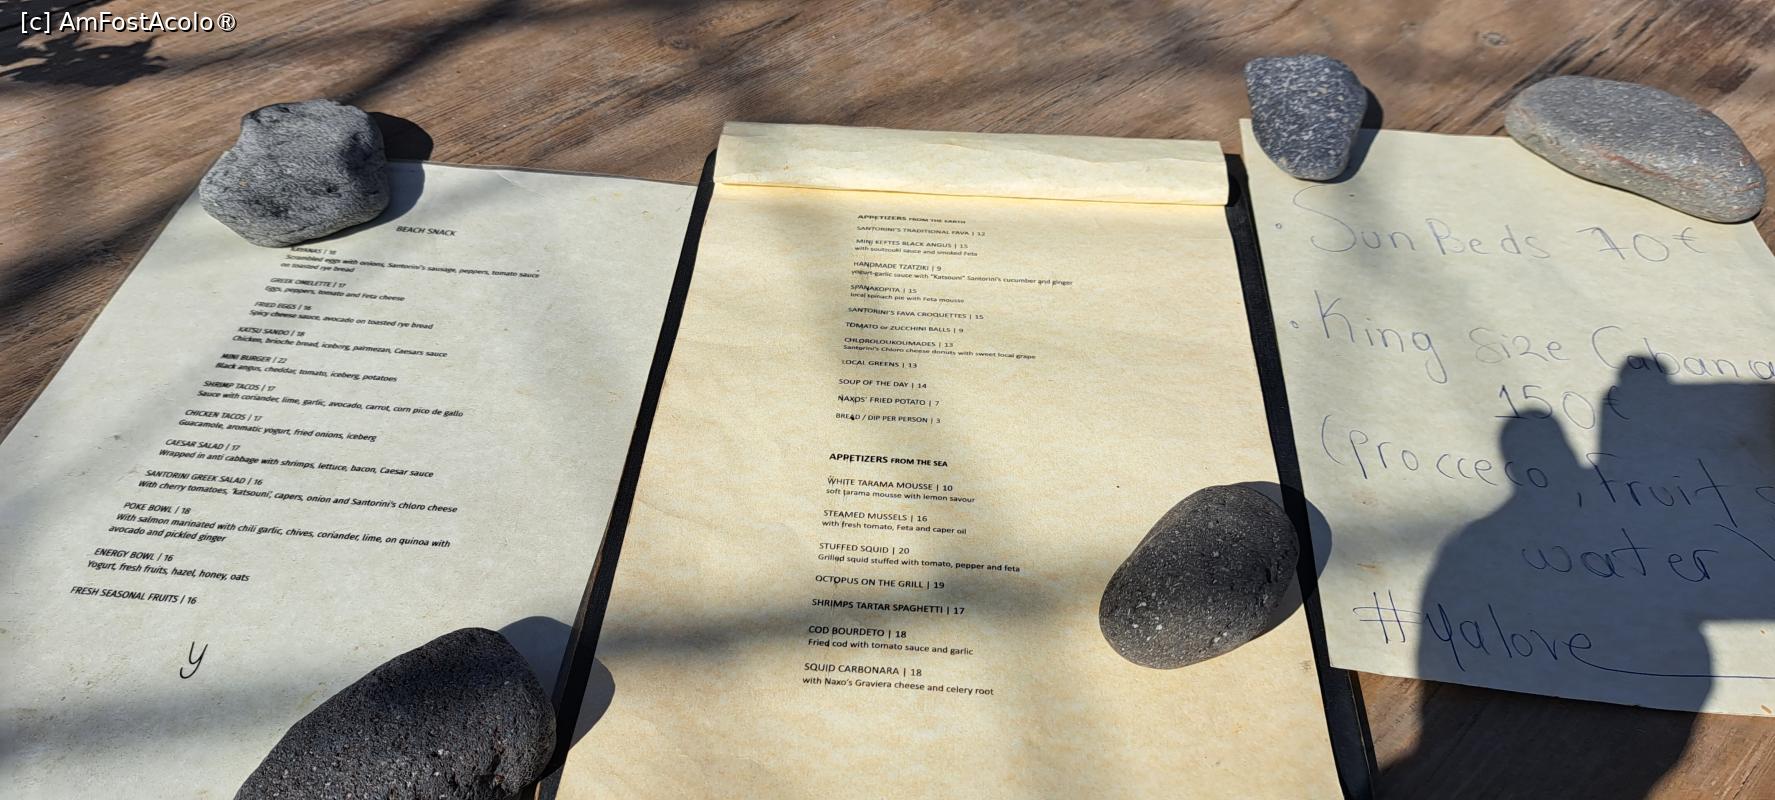 [c] AmFostAcolo®
BEACH SNACK
KAYANAS | 18
Scrambled eggs with onions, Santorini's sausage, peppers, tomato sauce
on toasted rye bread
GREEK OMELETTE | 17
Eggs, peppers, tomato and Feta cheese
FRIED EGGS | 16
Spicy cheese sauce, avocado on toasted rye bread
KATSU SANDO | 18
Chicken, brioche bread, iceberg, parmezan, Caesars sauce
MINI BURGER | 22
Black angus, cheddar, tomato, iceberg, potatoes
SHRIMP TACOS | 17
Sauce with coriander, lime, garlic, avocado, carrot, corn pico de gallo
CHICKEN TACOS | 17
Guacamole, aromatic yogurt, fried onions, iceberg
CAESAR SALAD | 17
Wrapped in anti cabbage with shrimps, lettuce, bacon, Caesar sauce
SANTORINI GREEK SALAD | 16
With cherry tomatoes, 'katsouni', capers, onion and Santorini's chloro cheese
POKE BOWL | 18
With salmon marinated with chili garlic, chives, coriander, lime, on quinoa with
avocado and pickled ginger
ENERGY BOWL | 16
Yogurt, fresh fruits, hazel, honey, oats
FRESH SEASONAL FRUITS | 16
y
APPETIZERS FROM THE EARTH
SANTORINI'S TRADITIONAL FAVA | 12
MINI KEFTES BLACK ANGUS | 15
with soutzouki sauce and smoked Feta
HANDMADE TZATZIKI | 9
yogurt-garlic sauce with "Katsouni" Santorini's cucumber and ginger
SPANAKOPITA | 15
local spinach pie with Feta mousse
SANTORINI'S FAVA CROQUETTES | 15
TOMATO or ZUCCHINI BALLS | 9
CHLOROLOUKOUMADES | 13
Santorini's Chloro cheese donuts with sweet local grape
LOCAL GREENS | 13
SOUP OF THE DAY | 14
NAXOS' FRIED POTATO | 7
BREAD / DIP PER PERSON | 3
APPETIZERS FROM THE SEA
WHITE TARAMA MOUSSE | 10
soft tarama mousse with lemon savour
STEAMED MUSSELS | 16
with fresh tomato, Feta and caper oil
STUFFED SQUID | 20
Grilled squid stuffed with tomato, pepper and feta
OCTOPUS ON THE GRILL | 19
SHRIMPS TARTAR SPAGHETTI | 17
COD BOURDETO | 18
Fried cod with tomato sauce and garlic
SQUID CARBONARA | 18
with Naxo's Graviera cheese and celery root
• Sun Beds 70€
• King Size Cabana
150€
(procceco, fruits
water)
#yalove